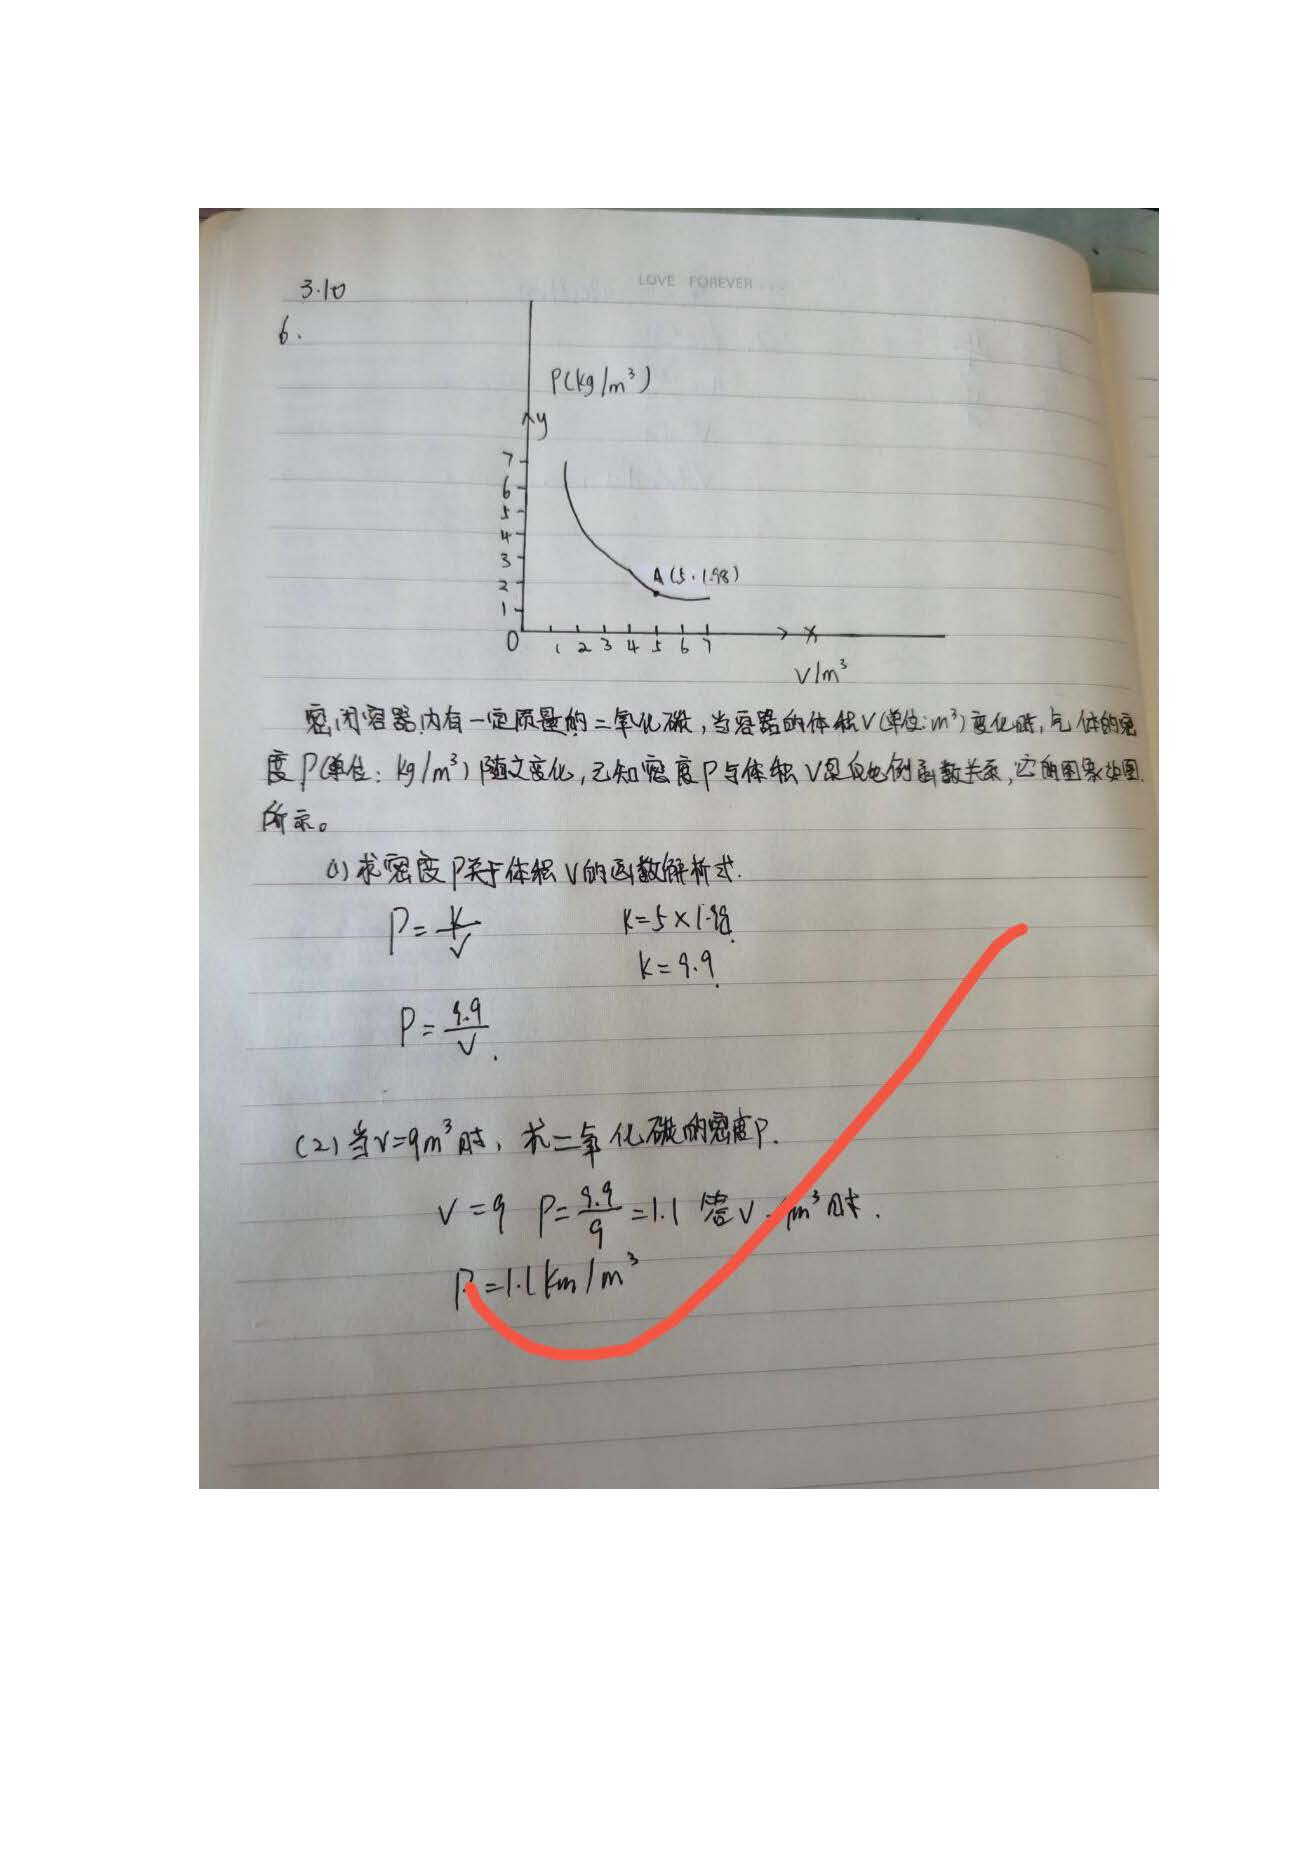 LOVE FOREVER...
3.10
6.
P(kg/m³)
y
7
6
5
4
3
2
1
A(5.1.98)
0 1 2 3 4 5 6 7 x
V/m³
密闭容器内有一定质量的二氧化碳,当容器的体积V(单位:m³)变化时,气体的密
度P(单位:kg/m³)随之变化,已知密度P与体积V是反比例函数关系,它的图象如图
所示。
(1)求密度P关于体积V的函数解析式.
P=k/V K=5×1.98.
k=9.9.
P=9.9/V.
(2)当V=9m³时,求二氧化碳的密度P.
V=9 P=9.9/9=1.1 答V=9m³时.
P=1.1km/m³